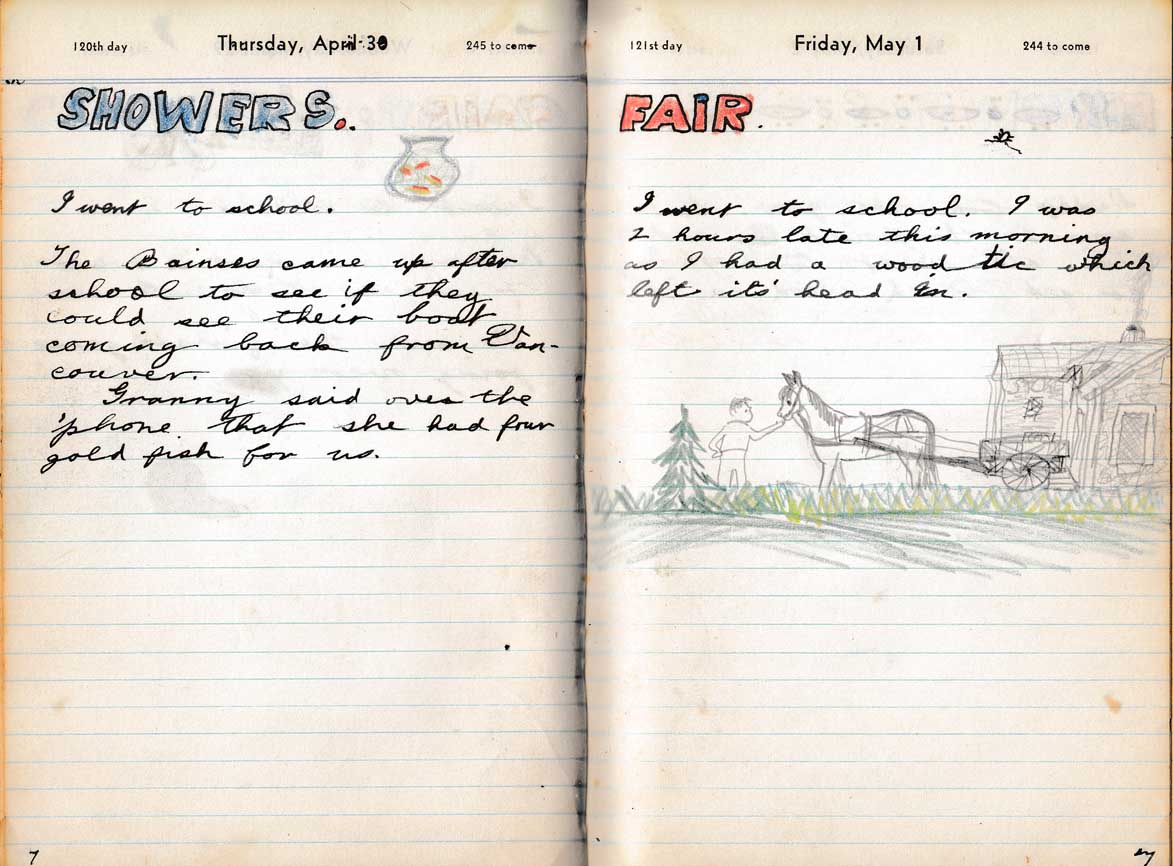 120th day Thursday, April 30 245 to come
SHOWERS.
I went to school.
The Bainses came up after
school to see if they
could see their boat
coming back from Van-
couver.
Granny said over the
'phone that she had four
gold fish for us.
7
121st day Friday, May 1 244 to come
FAiR.
I went to school. I was
2 hours late this morning
as I had a wood tic which
left it's head in.